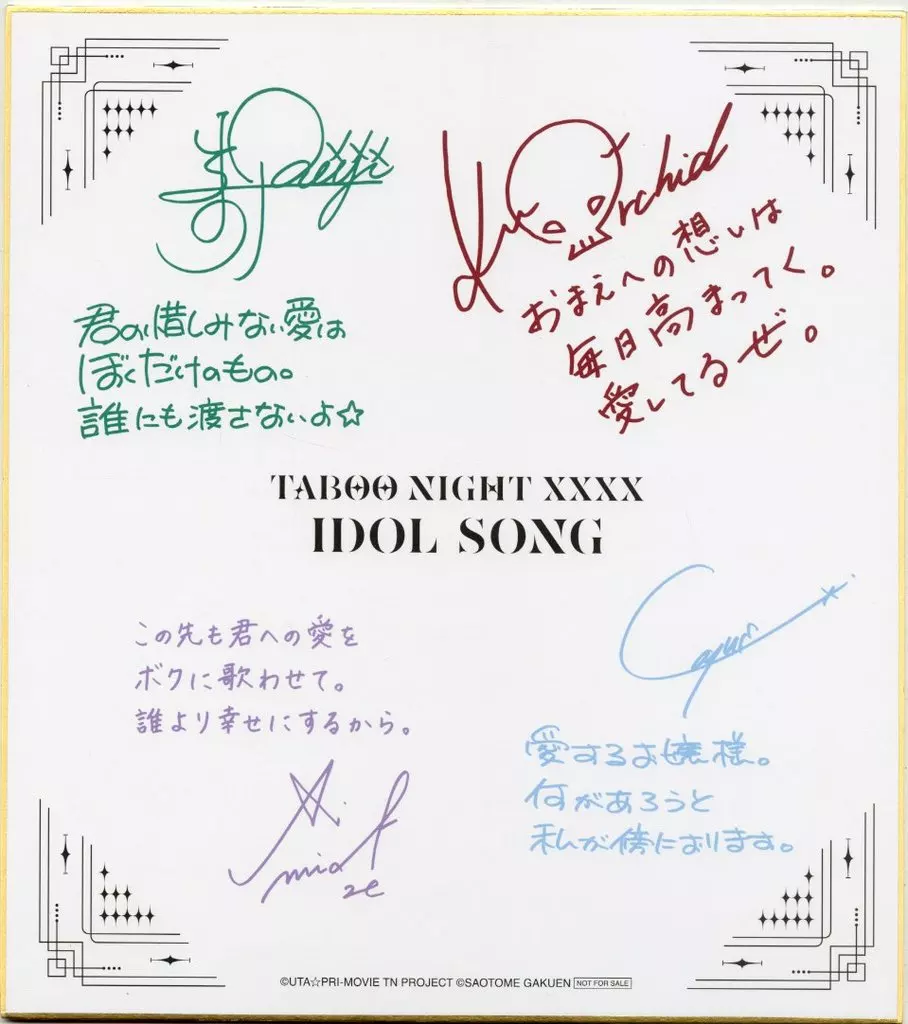 寿 Reiji
君の惜しみない愛は
ぼくだけのもの。
誰にも渡さないよ☆
Kurosaki Orchid
おまえへの想いは
毎日高まってく。
愛してるぜ。
TABOO NIGHT XXXX
IDOL SONG
この先も君への愛を
ボクに歌わせて。
誰より幸せにするから。
Camus
愛するお嬢様。
何があろうと
私が傍におります。
©UTA☆PRI-MOVIE TN PROJECT ©SAOTOME GAKUEN NOT FOR SALE